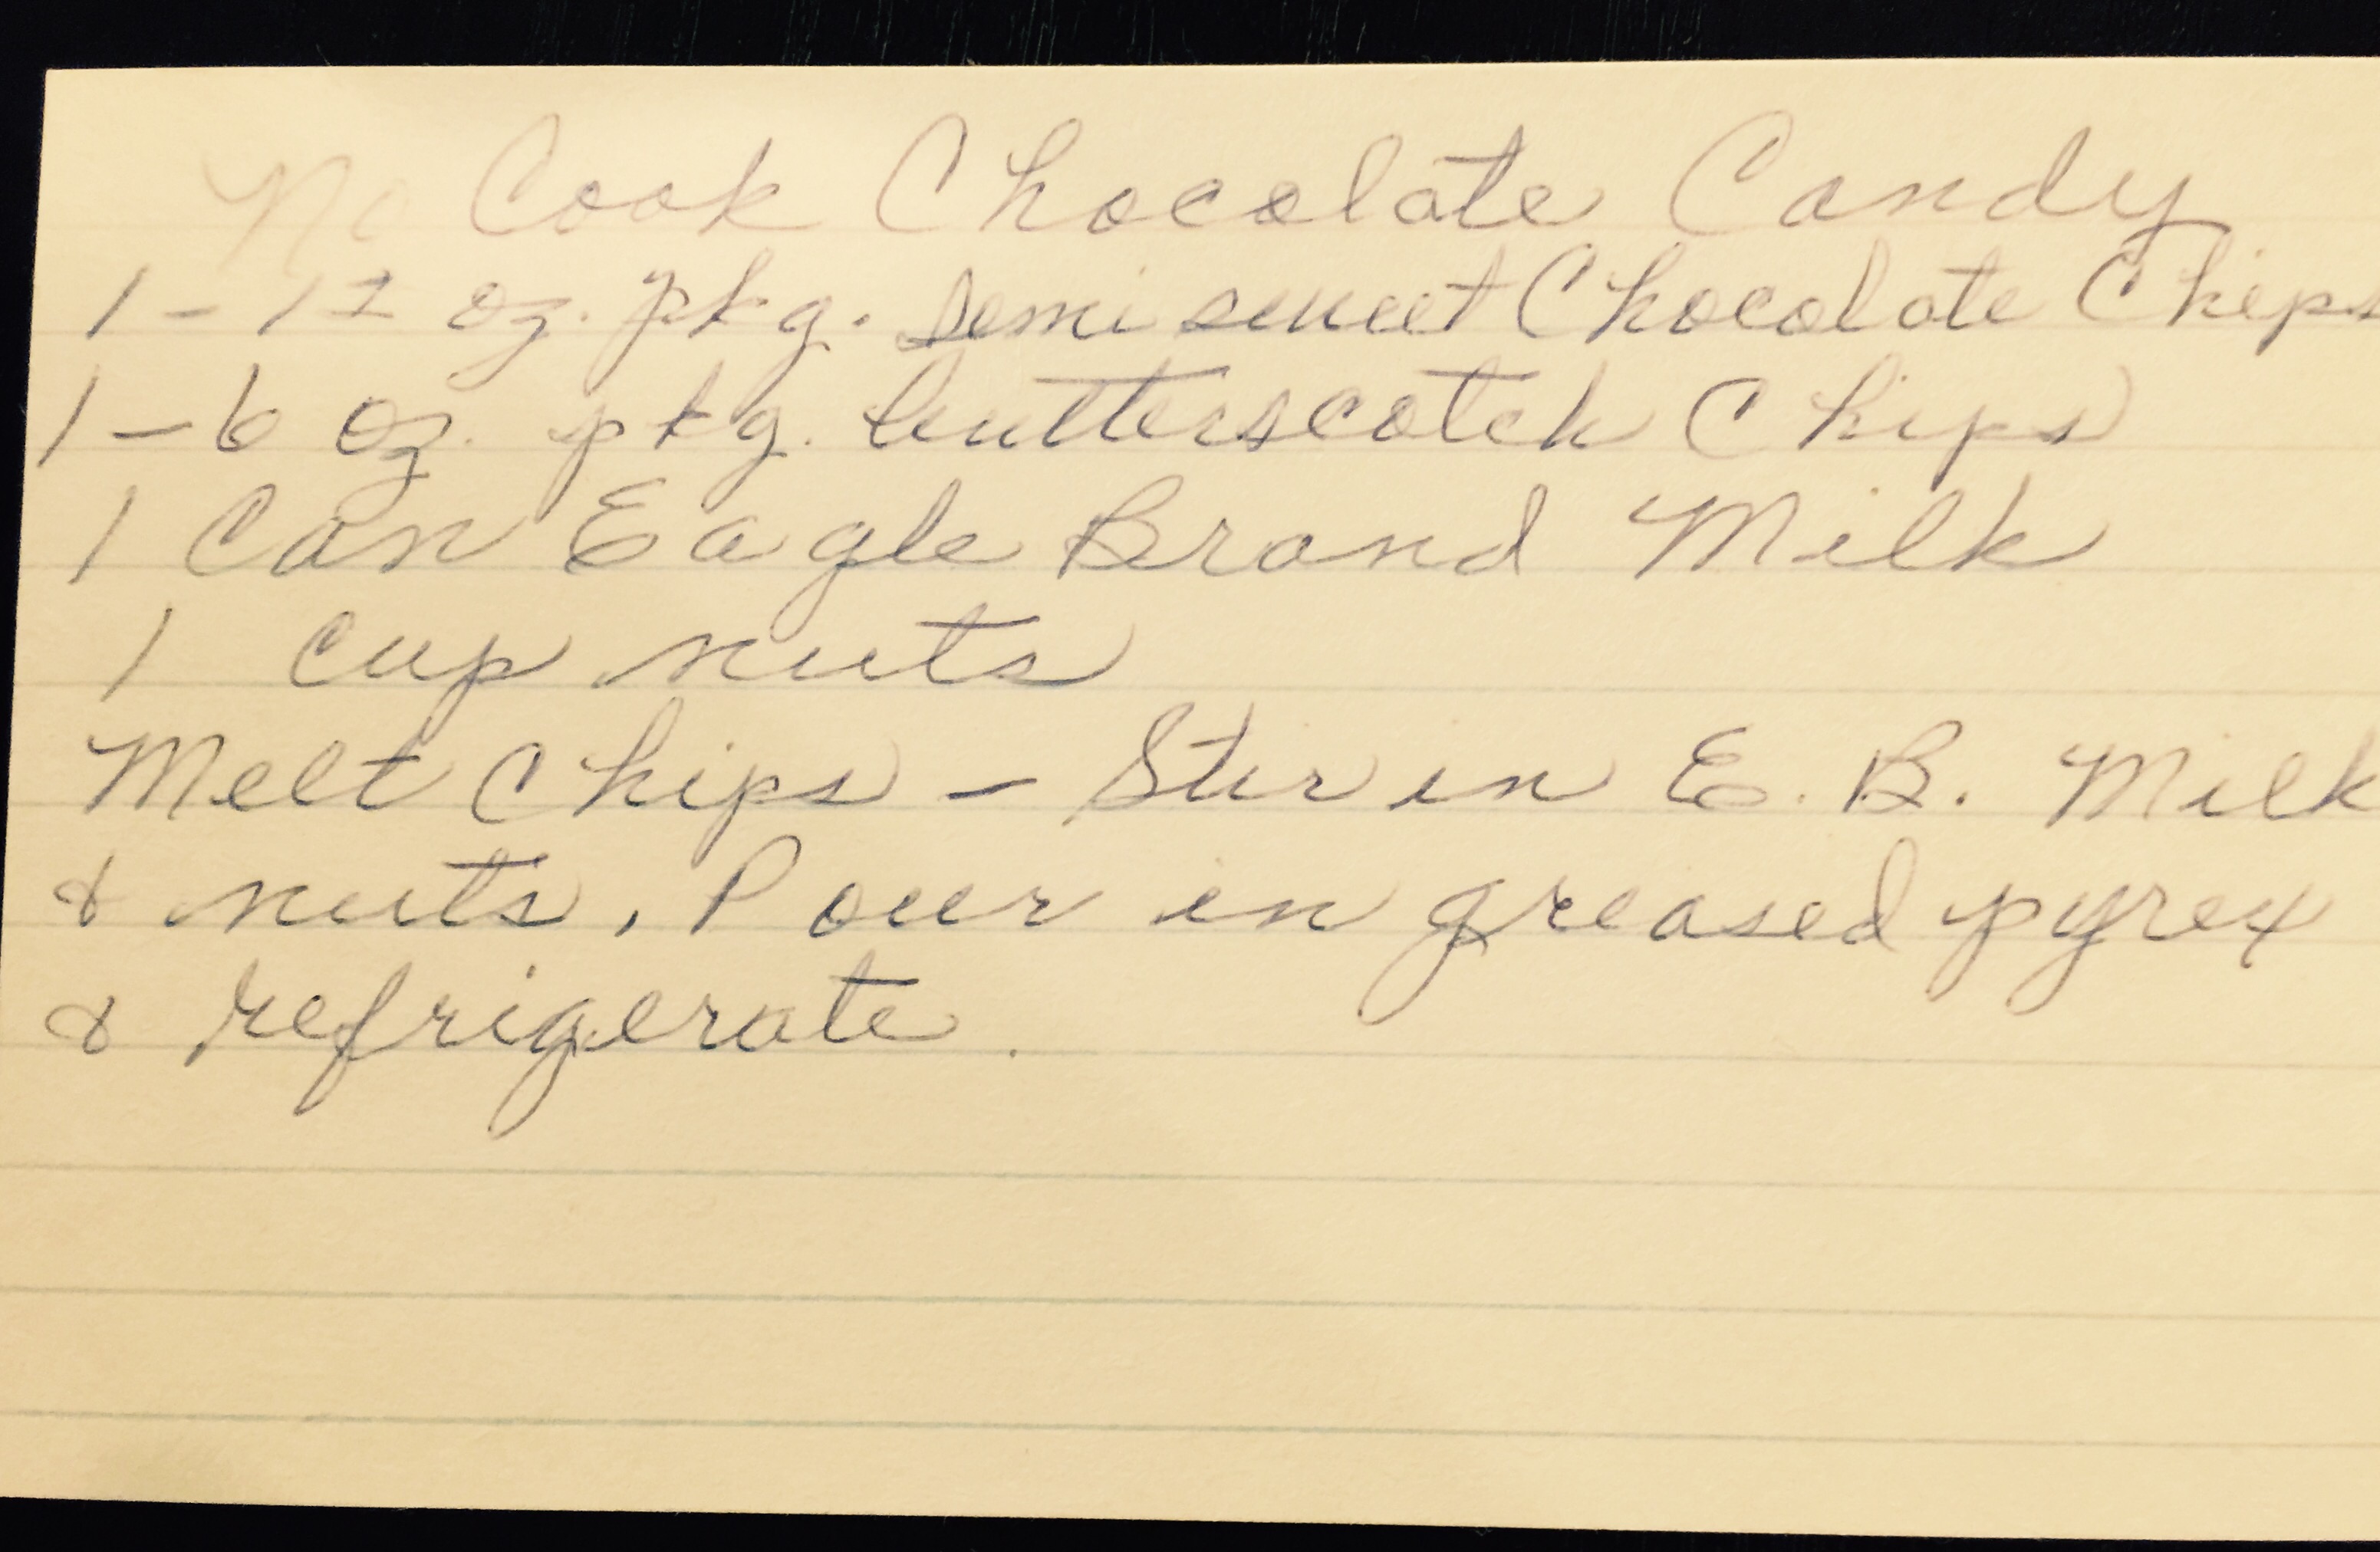 No Cook Chocolate Candy
1 - 12 oz. pkg. Semi sweet Chocolate Chips
1 - 6 oz. pkg. butterscotch Chips
1 Can Eagle Brand Milk
1 cup nuts
Melt Chips - Stir in E. B. Milk
& nuts, Pour in greased pyrex
& refrigerate.